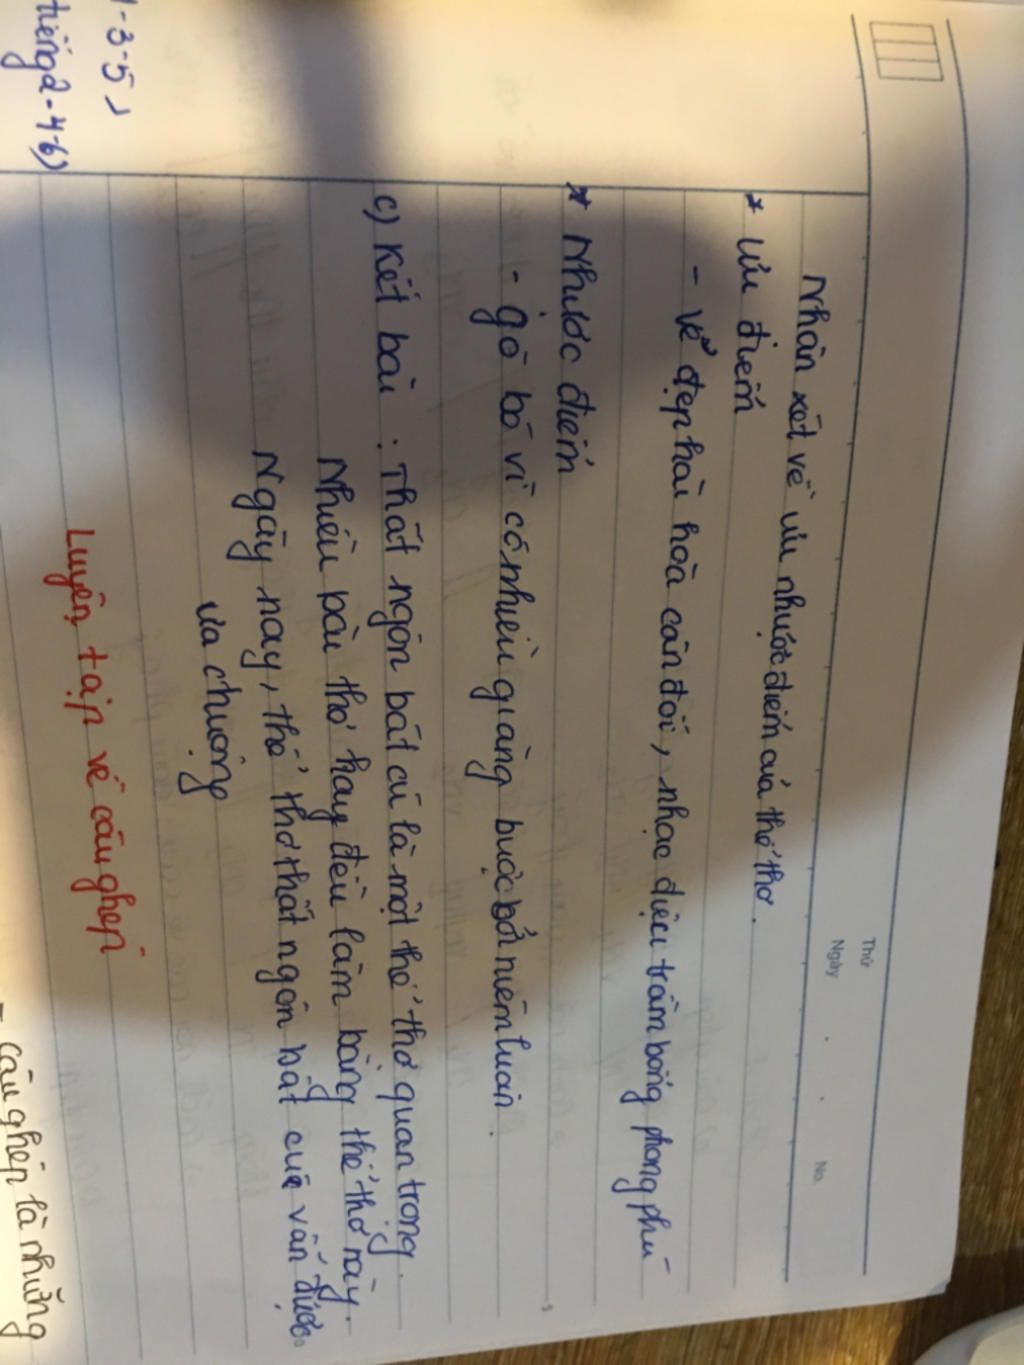 Thứ
Ngày
No.
Nhận xét về ưu nhược điểm của thể thơ.
* Ưu điểm
- vẻ đẹp hài hoà cân đối, nhạc điệu trầm bổng phong phú
* Nhược điểm
- gò bó vì có nhiều giàng buộc bởi niêm luận.
c) Kết bài : Thất ngôn bát cú là một thể thơ quan trọng.
Nhiều bài thơ hay đều làm bằng thể thơ này.
Ngày nay, thể thơ thất ngôn bát cú vẫn được
ưa chuộng
1-3-5)
tiếng 2-4-6)
Luyện tập về câu ghép
- Câu ghép là những